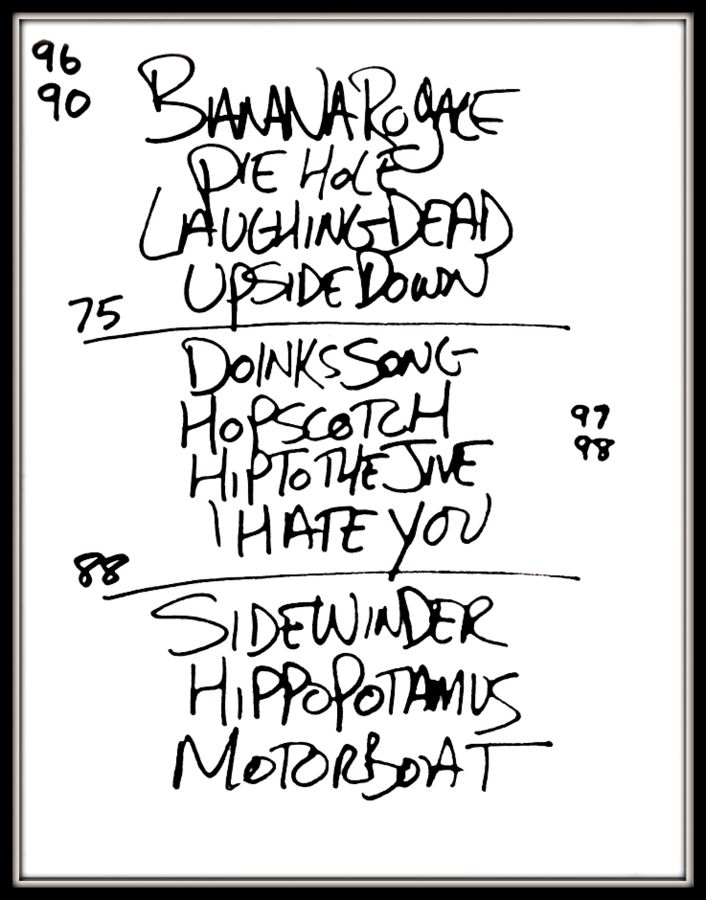 96
90
BANANA ROYALE
PIE HOLE
LAUGHING DEAD
UPSIDE DOWN
75
DOINKS SONG
HOPSCOTCH
97
98
HIP TO THE JIVE
I HATE YOU
88
SIDEWINDER
HIPPOPOTAMUS
MOTORBOAT